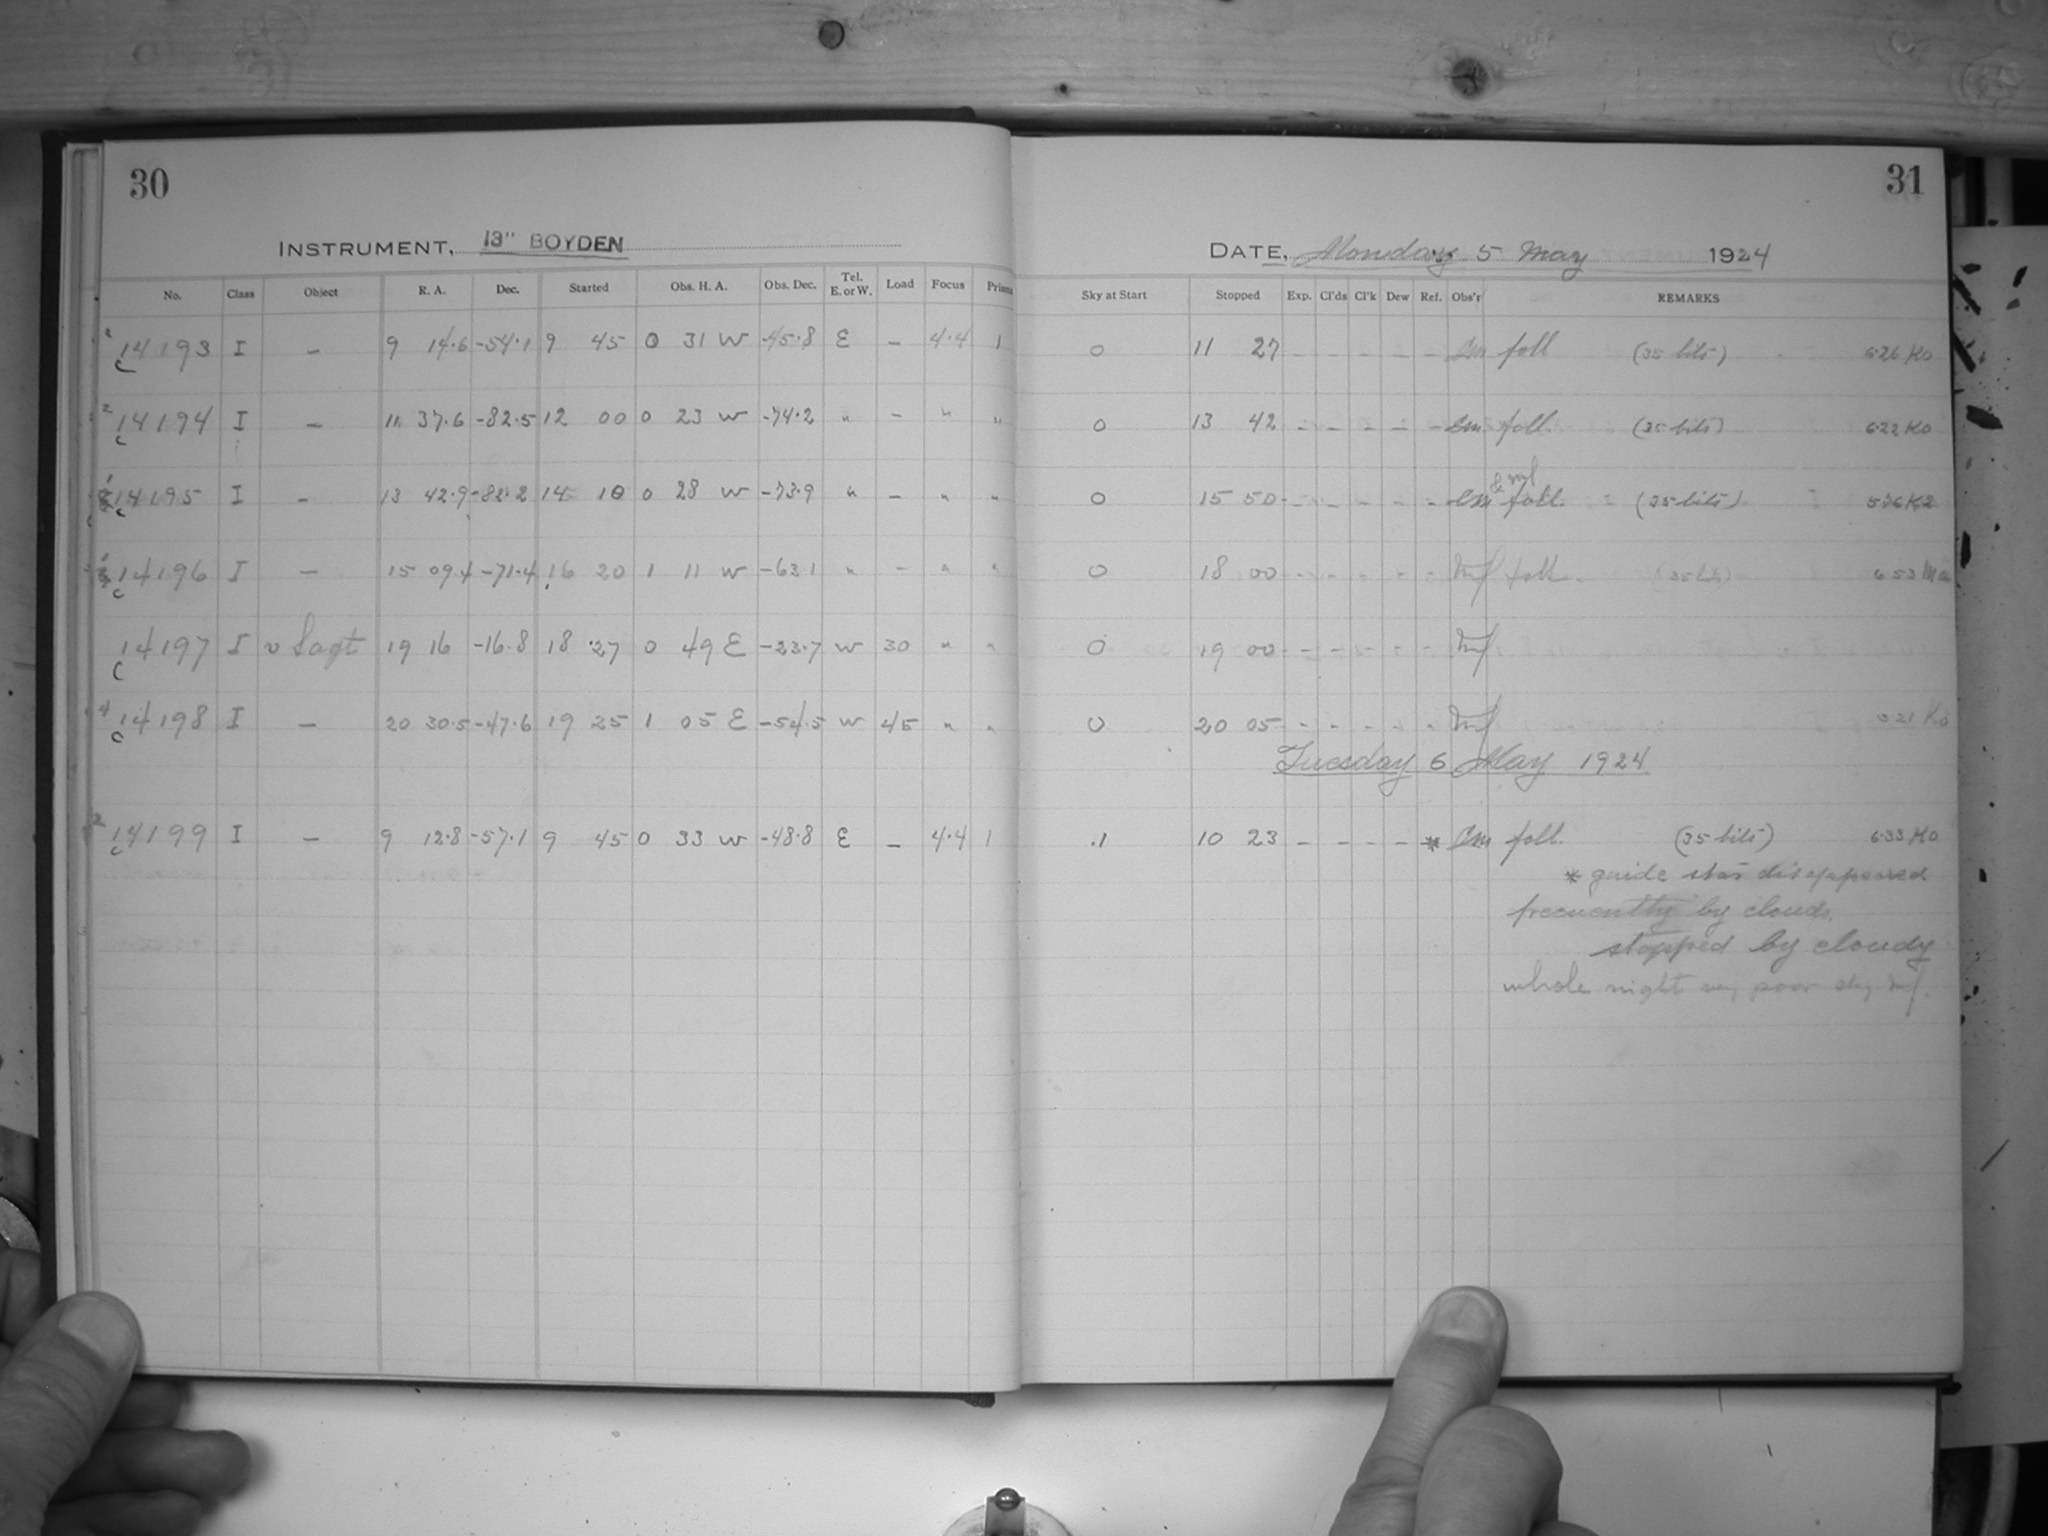 30
31
INSTRUMENT, 13" BOYDEN
DATE, Monday 5 May 1924
No. Class Object R. A. Dec. Started Obs. H. A. Obs. Dec. Tel. E. or W. Load Focus Prism Sky at Start Stopped Exp. Cl'ds Cl'k Dew Ref. Obs'r REMARKS
2 14193 I – 9 14.6 -54.1 9 45 0 31 W -45.8 E – 4.4 1 0 11 27 – – – – – foll (35 bits) 6.26 K0
c
2 14194 I – 11 37.6 -82.5 12 00 0 23 W -74.2 " – " " 0 13 42 – – – – – foll. (35 bits) 6.22 K0
c
14195 I – 13 42.9 -82.2 14 10 0 28 W -73.9 " – " " 0 15 50 – – – – – foll. (35 bits) K2
c
14196 I – 15 09.4 -71.4 16 20 1 11 W -63.1 " – " " 0 18 00 – – – – – foll. (35 bits) 6.53 Ma
c
14197 I υ Sagt 19 16 -16.8 18 27 0 49 E -23.7 W 30 " " 0 19 00 – – – – –
c
4 14198 I – 20 30.5 -47.6 19 25 1 05 E -54.5 W 45 " " 0 20 05 – – – – –
c
Tuesday 6 May 1924
2 14199 I – 9 12.8 -57.1 9 45 0 33 W -48.8 E – 4.4 1 .1 10 23 – – – – * foll. (35 bits) 6.33 K0
c
* guide star disappeared
frecuently by clouds.
stopped by cloudy
whole night very poor sky